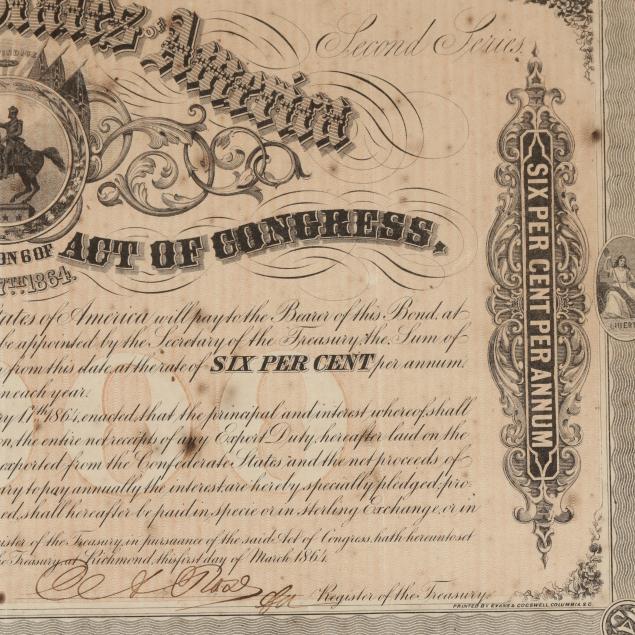 Second Series.
of America
VINDICE
ON 6 OF ACT OF CONGRESS,
7TH 1864.
States of America will pay to the Bearer of this Bond, at
be appointed by the Secretary of the Treasury, the Sum of
from this date at the rate of SIX PER CENT per annum
on each year.
ry 17th 1864, enacted, that the principal and interest whereof shall
on, the entire net receipts of any Export Duty, hereafter laid on the
exported from the Confederate States and the net proceeds of
ary to pay annually the interest, are hereby specially pledged; pro-
ed, shall hereafter be paid in specie or in sterling Exchange, or in
ister of the Treasury, in pursuance of the said Act of Congress, hath hereunto set
he Treasury, at Richmond, this first day of March 1864.
Register of the Treasury.
PRINTED BY EVANS & COGSWELL COLUMBIA, S.C.
SIX PER CENT PER ANNUM
LIBERT